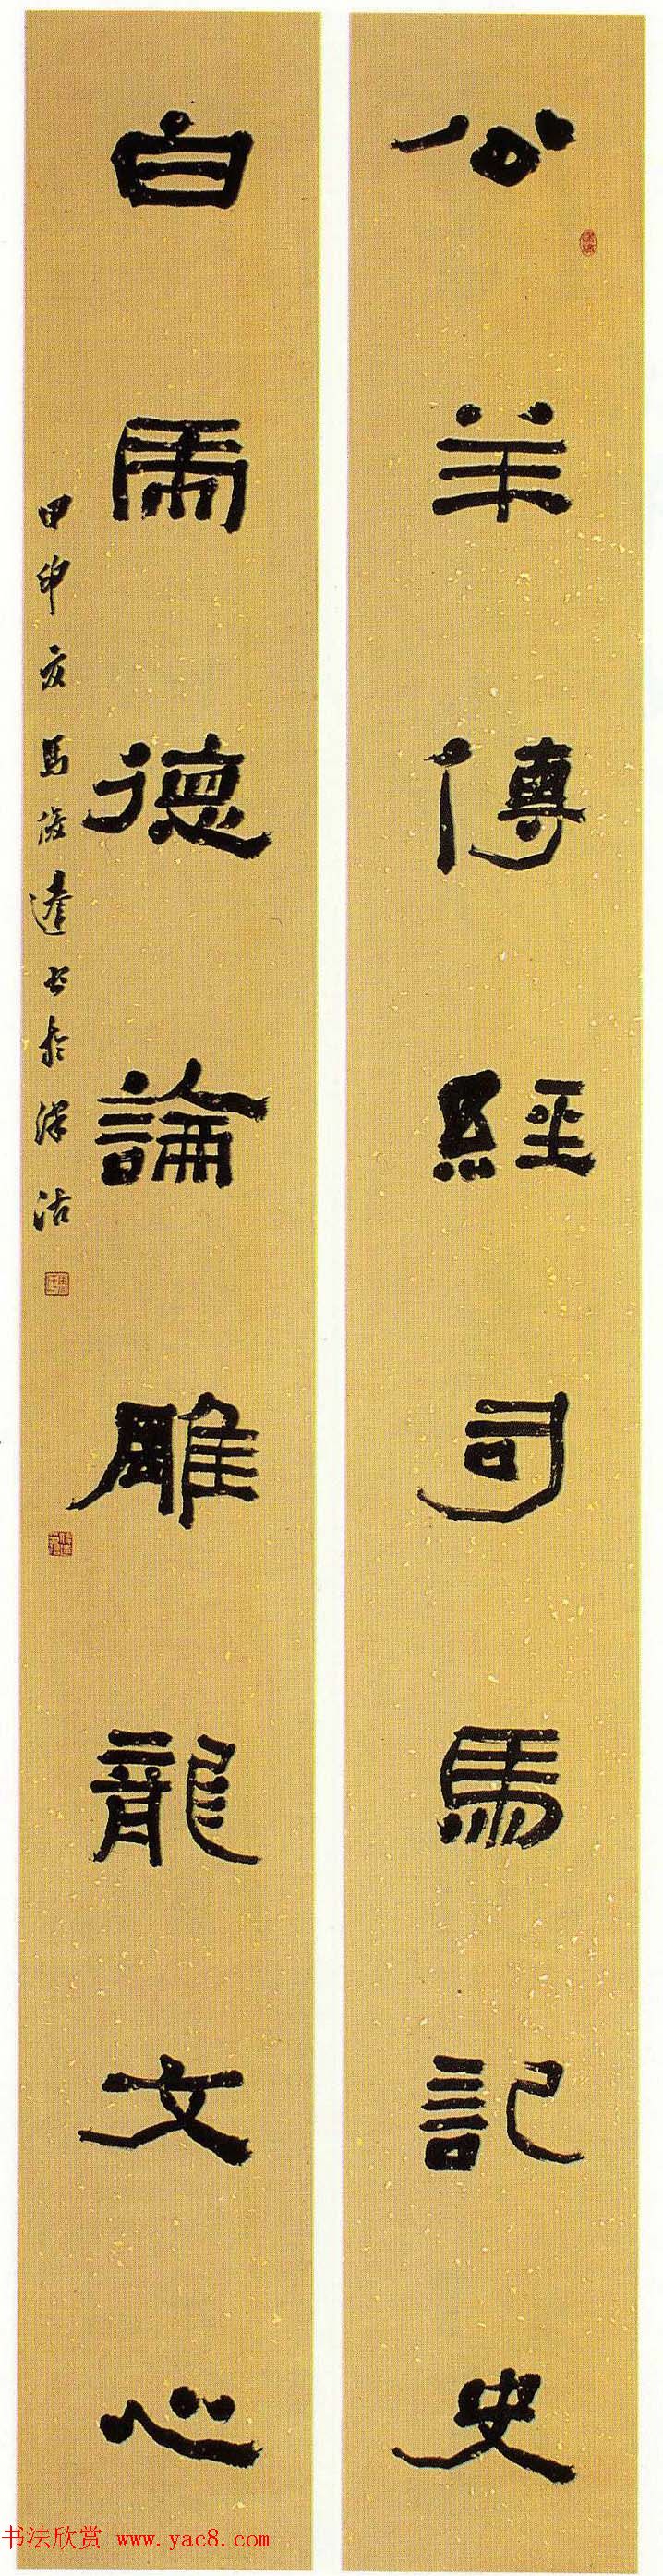 公羊傳經司馬記史
白虎德論雕龍文心
甲申夏馬俊達書於津沽
书法欣赏 www.yac8.com